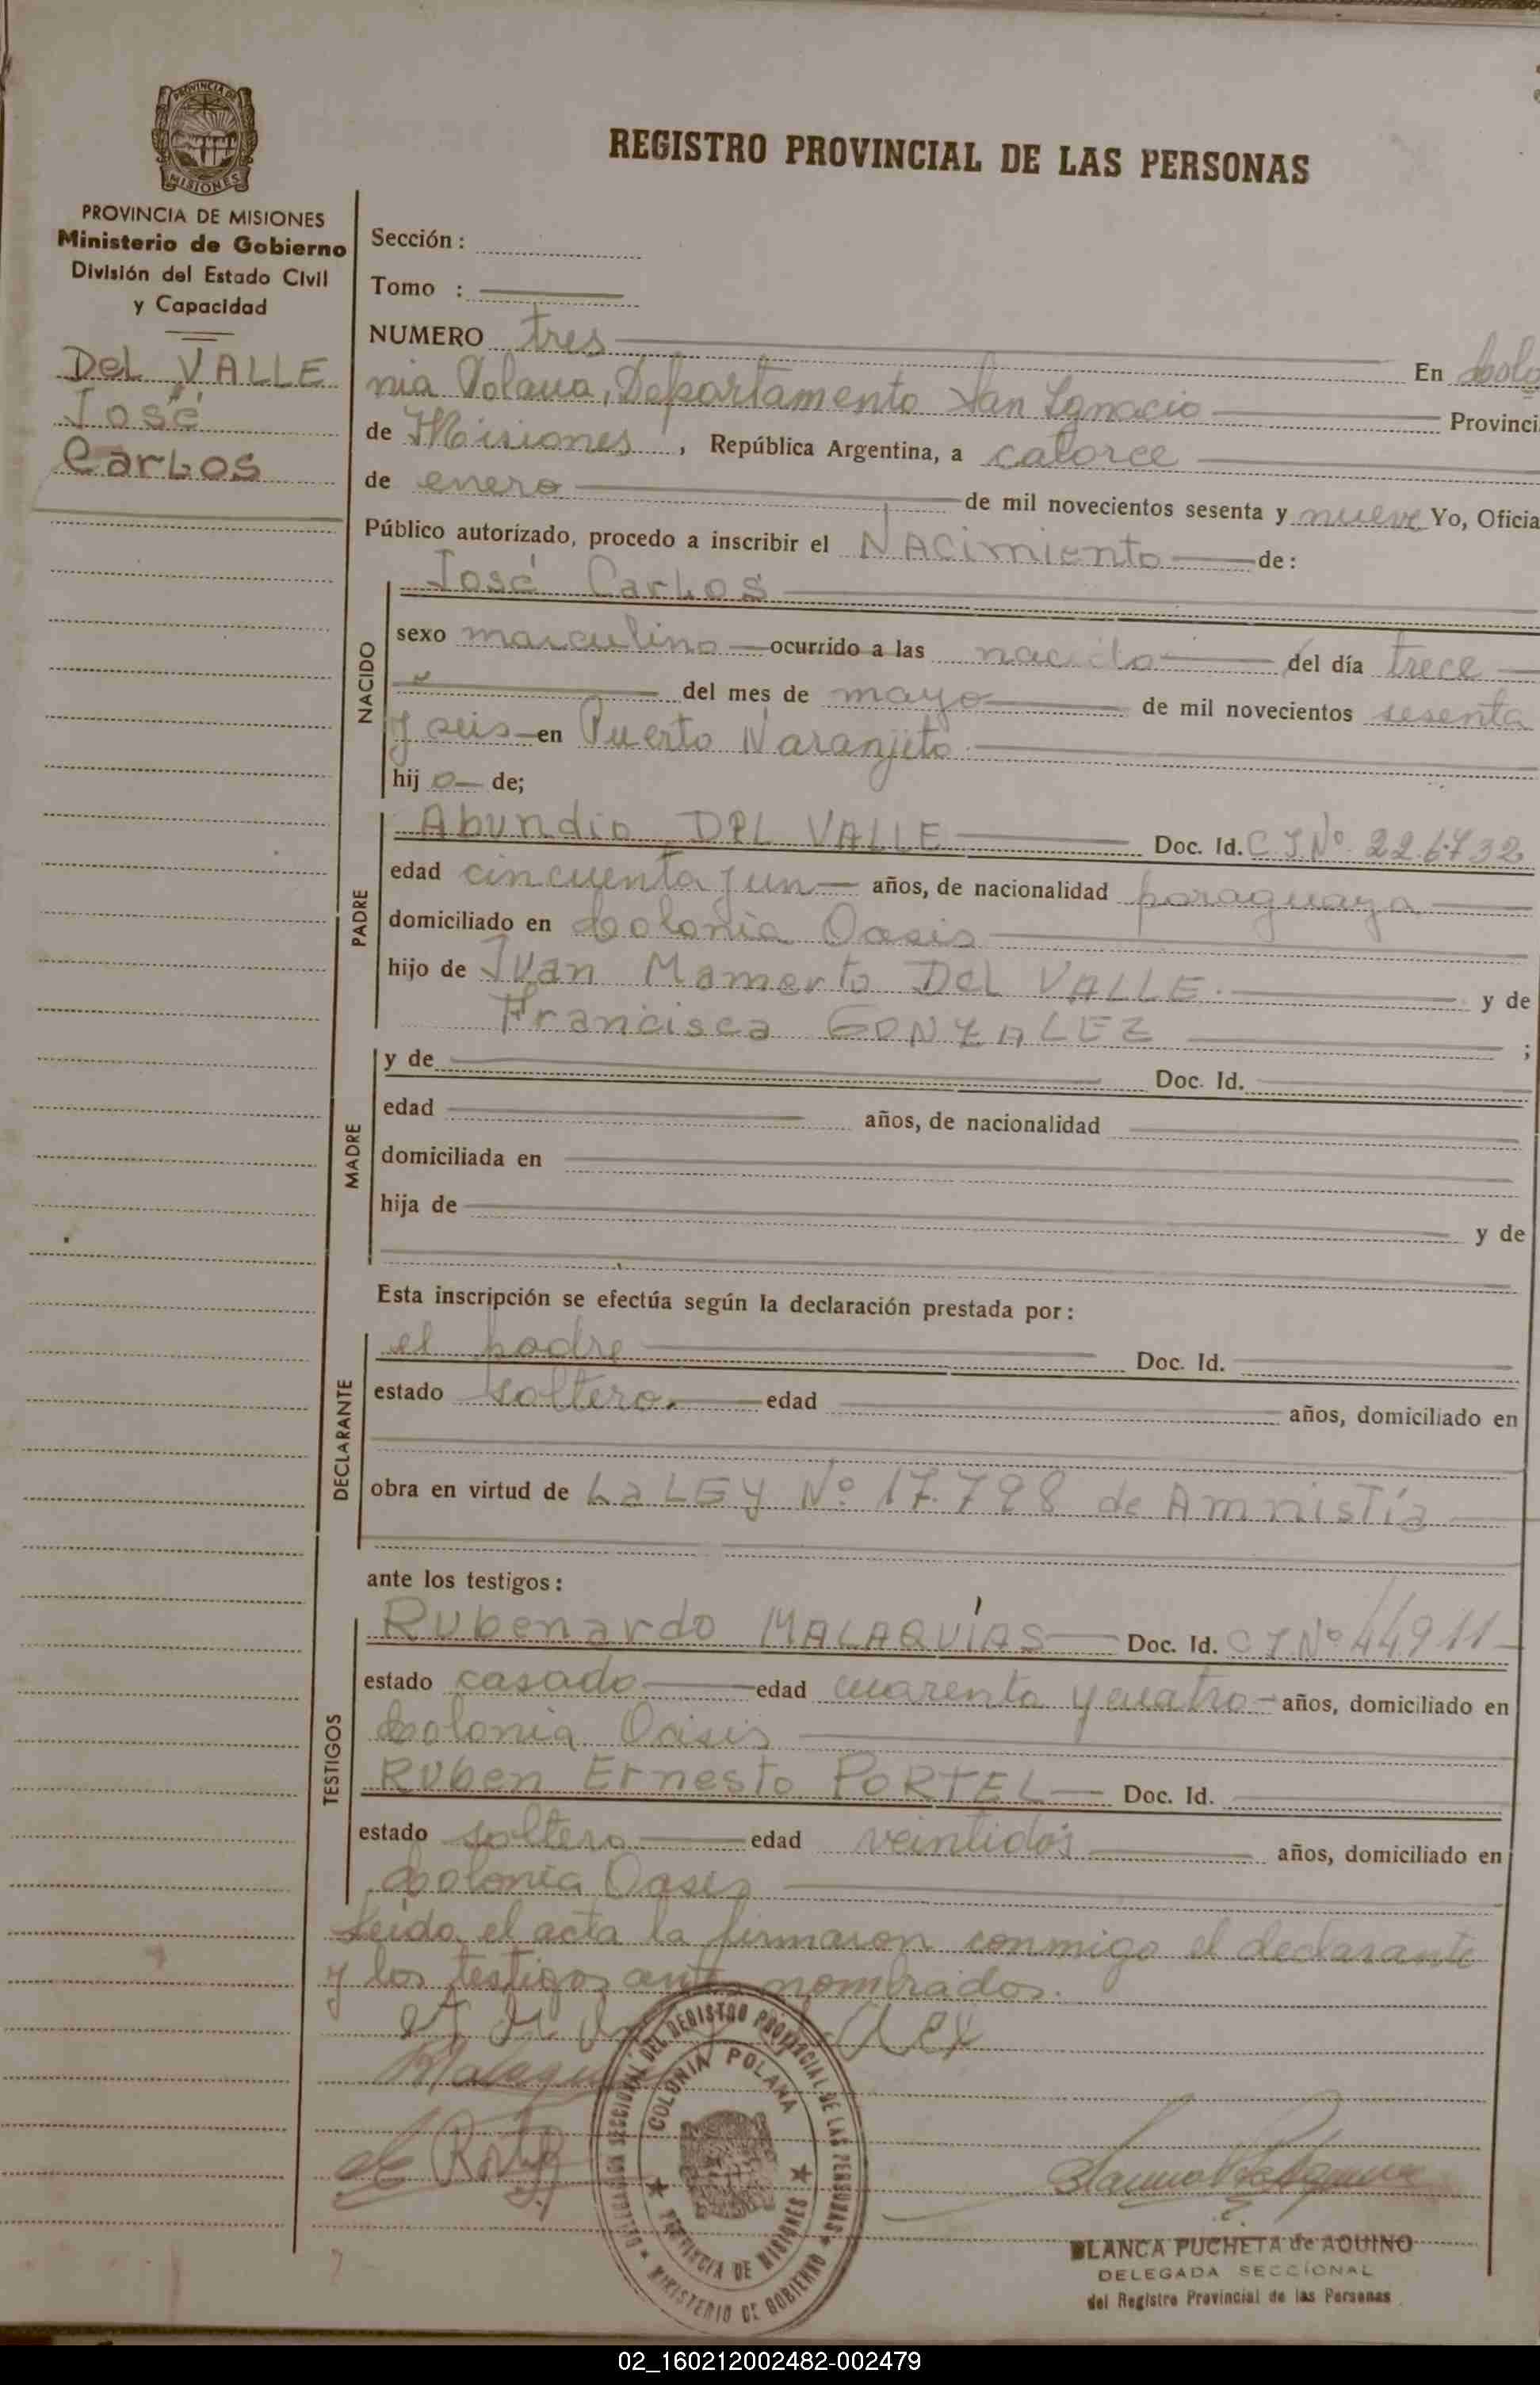 PROVINCIA DE MISIONES
REGISTRO PROVINCIAL DE LAS PERSONAS
PROVINCIA DE MISIONES
Ministerio de Gobierno
División del Estado Civil
y Capacidad
Del VALLE
José
Carlos
Sección :
Tomo :
NUMERO tres
En Colo
nia Polana, Departamento San Ignacio Provinci
de Misiones, República Argentina, a catorce
de enero de mil novecientos sesenta y nueve Yo, Oficia
Público autorizado, procedo a inscribir el NAcimiento de:
NACIDO
José Carlos
sexo masculino ocurrido a las nacido del día trece
del mes de mayo de mil novecientos sesenta
y seis en Puerto Naranjito
hij o de;
PADRE
Abundio DEL VALLE Doc. Id. C.I.Nº 226732
edad cincuenta y un años, de nacionalidad paraguaya
domiciliado en Colonia Oasis
hijo de Juan Mamerto Del VALLE y de
Francisca GONZALEZ ;
MADRE
y de Doc. Id.
edad años, de nacionalidad
domiciliada en
hija de y de
Esta inscripción se efectúa según la declaración prestada por :
DECLARANTE
el padre Doc. Id.
estado soltero edad años, domiciliado en
obra en virtud de La LEy Nº 17.798 de Amnistía
ante los testigos :
TESTIGOS
Rubenardo MALAQUÍAS Doc. Id. C I.Nº 44911
estado casado edad cuarenta y cuatro años, domiciliado en
Colonia Oasis
Ruben Ernesto PORTEL Doc. Id.
estado soltero edad veintidós años, domiciliado en
Colonia Oasis
Leída el acta la firmaron conmigo el declarante
y los testigos antes nombrados.
DELEGACION SECCIONAL DEL REGISTRO PROVINCIAL DE LAS PERSONAS
COLONIA POLANA
PROVINCIA DE MISIONES
MINISTERIO DE GOBIERNO
BLANCA PUCHETA de AQUINO
DELEGADA SECCIONAL
del Registro Provincial de las Personas
02_160212002482-002479